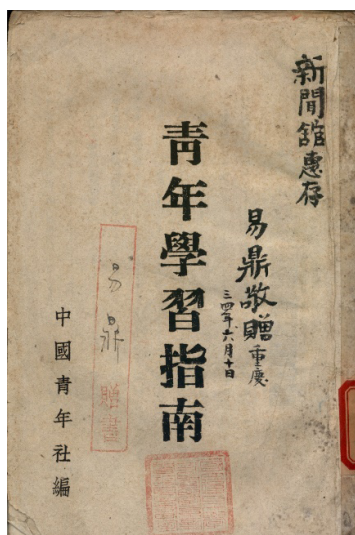 新聞館惠存
易鼎敬贈重慶
三四年六月十日
青年學習指南
易鼎贈書
中國青年社編